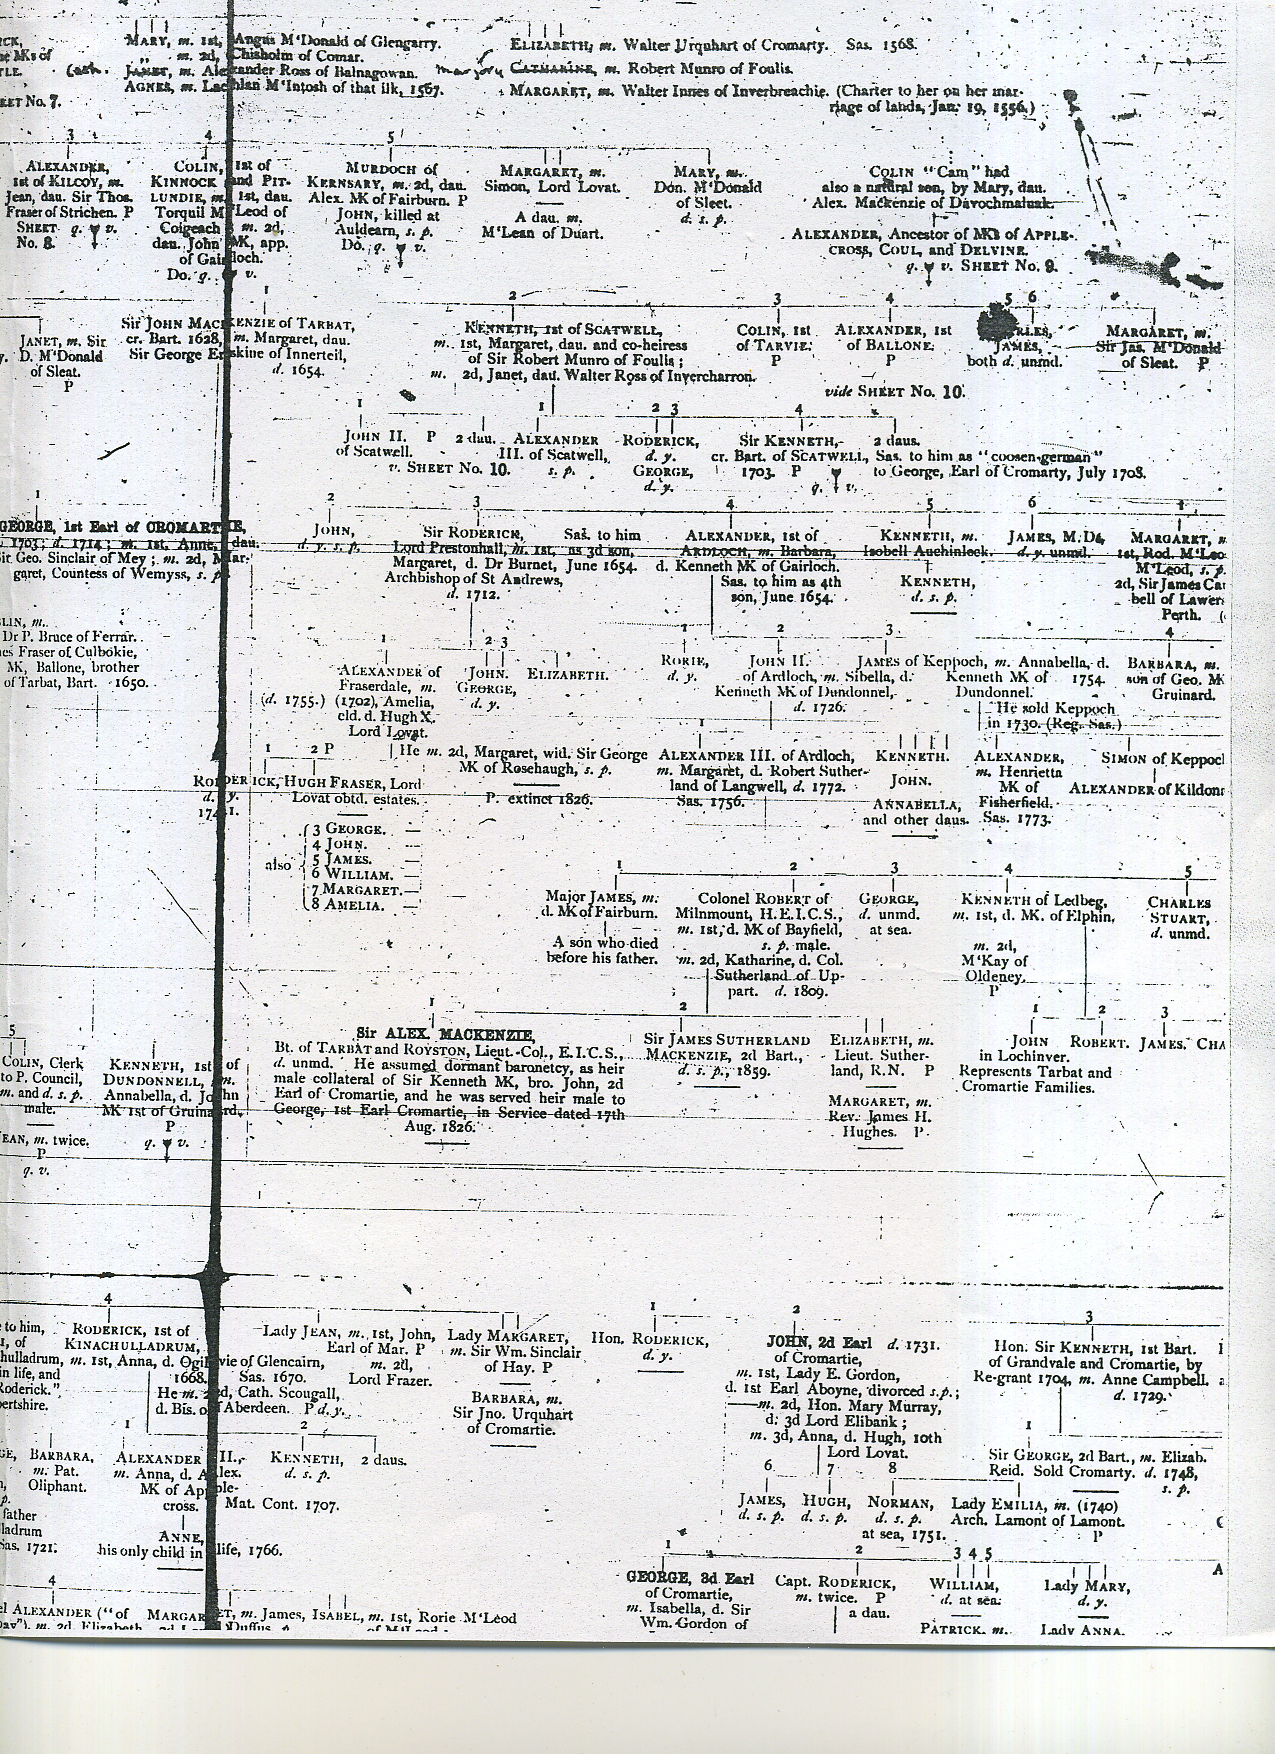 RCK,
MARY, m. 1st, Angus M'Donald of Glengarry.
„ m. 2d, Chisholm of Comar.
JANET, m. Alexander Ross of Balnagowan.
AGNES, m. Lachlan M'Intosh of that ilk, 1567.
e MKs of
TLE.
EET No. 7.
ELIZABETH, m. Walter Urquhart of Cromarty. Sas. 1568.
Marjory CATHARINE, m. Robert Munro of Foulis.
MARGARET, m. Walter Innes of Inverbreachie. (Charter to her on her mar-
riage of lands, Jan. 19, 1556.)
3
ALEXANDER,
1st of KILCOY, m.
Jean, dau. Sir Thos.
Fraser of Strichen. P
SHEET q. v.
No. 8.
4
COLIN, 1st of
KINNOCK and PIT-
LUNDIE, m. 1st, dau.
Torquil M'Leod of
Coigeach m. 2d,
dau. John MK, app.
of Gairloch.
Do. q. v.
5
MURDOCH of
KERNSARY, m. 2d, dau.
Alex. MK of Fairburn. P
JOHN, killed at
Auldearn, s. p.
Do. q. v.
MARGARET, m.
Simon, Lord Lovat.
A dau. m.
M'Lean of Duart.
MARY, m.
Don. M'Donald
of Sleet.
d. s. p.
COLIN "Cam" had
also a natural son, by Mary, dau.
Alex. Mackenzie of Davochmaluak.
ALEXANDER, Ancestor of MKs of APPLE-
CROSS, COUL, and DELVINE.
q. v. SHEET No. 9.
JANET, m. Sir
D. M'Donald
of Sleat.
P
1
Sir JOHN MACKENZIE of TARBAT,
cr. Bart. 1628, m. Margaret, dau.
Sir George Erskine of Innerteil,
d. 1654.
2
KENNETH, 1st of SCATWELL,
m. 1st, Margaret, dau. and co-heiress
of Sir Robert Munro of Foulis;
m. 2d, Janet, dau. Walter Ross of Invercharron.
3
COLIN, 1st
of TARVIE.
P
4
ALEXANDER, 1st
of BALLONE.
P
vide SHEET No. 10.
5 6
JAMES,
both d. unmd.
MARGARET, m.
Sir Jas. M'Donald
of Sleat. P
1
JOHN II. P
of Scatwell.
v. SHEET No. 10.
2 dau.
1
ALEXANDER
III. of Scatwell,
s. p.
2 3
RODERICK,
d. y.
GEORGE,
d. y.
4
Sir KENNETH,
cr. Bart. of SCATWELL,
1703. P
q. v.
2 daus.
Sas. to him as "coosen-german"
to George, Earl of Cromarty, July 1708.
1
GEORGE, 1st Earl of CROMARTIE,
1703; d. 1714; m. 1st, Anne, dau.
Sir Geo. Sinclair of Mey; m. 2d, Mar-
garet, Countess of Wemyss, s. p.
2
JOHN,
d. y. s. p.
3
Sir RODERICK,
Lord Prestonhall, m. 1st,
Margaret, d. Dr Burnet,
Archbishop of St Andrews,
d. 1712.
Sas. to him
as 3d son,
June 1654.
4
ALEXANDER, 1st of
ARDLOCH, m. Barbara,
d. Kenneth MK of Gairloch.
Sas. to him as 4th
son, June 1654.
5
KENNETH, m.
Isobell Auchinleck.
KENNETH,
d. s. p.
6
JAMES, M.D.,
d. y. unmd.
MARGARET, m
1st, Rod. M'Leo
M'Leod, s. p.
2d, Sir James Ca
bell of Lawer
Perth.
LIN, m.
Dr P. Bruce of Ferrar.
es Fraser of Culbokie,
MK, Ballone, brother
of Tarbat, Bart. 1650.
1
ALEXANDER of
Fraserdale, m.
(d. 1755.) (1702), Amelia,
eld. d. Hugh X.
Lord Lovat.
2 3
JOHN.
GEORGE,
d. y.
ELIZABETH.
1
RORIE,
d. y.
2
JOHN II.
of Ardloch, m. Sibella, d.
Kenneth MK of Dundonnel,
d. 1726.
3
JAMES of Keppoch, m. Annabella, d.
Kenneth MK of 1754.
Dundonnel.
He sold Keppoch
in 1730. (Reg. Sas.)
4
BARBARA, m.
son of Geo. M
Gruinard.
1
RODERICK,
d. y.
1741.
2 P
HUGH FRASER, Lord
Lovat obtd. estates.
He m. 2d, Margaret, wid. Sir George
MK of Rosehaugh, s. p.
P. extinct 1826.
1
ALEXANDER III. of Ardloch,
m. Margaret, d. Robert Suther-
land of Langwell, d. 1772.
Sas. 1756.
KENNETH.
JOHN.
ANNABELLA,
and other daus.
ALEXANDER,
m. Henrietta
MK of
Fisherfield.
Sas. 1773.
SIMON of Keppoc
ALEXANDER of Kildon
also
3 GEORGE.
4 JOHN.
5 JAMES.
6 WILLIAM.
7 MARGARET.
8 AMELIA.
1
Major JAMES, m.
d. MK of Fairburn.
A son who died
before his father.
2
Colonel ROBERT of
Milnmount, H.E.I.C.S.,
m. 1st, d. MK of Bayfield,
s. p. male.
m. 2d, Katharine, d. Col.
Sutherland of Up-
part. d. 1809.
3
GEORGE,
d. unmd.
at sea.
4
KENNETH of Ledbeg,
m. 1st, d. MK. of Elphin,
m. 2d,
M'Kay of
Oldeney.
P
5
CHARLES
STUART,
d. unmd.
5
COLIN, Clerk
to P. Council,
m. and d. s. p.
male.
EAN, m. twice.
P
q. v.
KENNETH, 1st of
DUNDONNELL, m.
Annabella, d. John
MK 1st of Gruinard,
P
q. v.
1
Sir ALEX. MACKENZIE,
Bt. of TARBAT and ROYSTON, Lieut.-Col., E.I.C.S.,
d. unmd. He assumed dormant baronetcy, as heir
male collateral of Sir Kenneth MK, bro. John, 2d
Earl of Cromartie, and he was served heir male to
George, 1st Earl Cromartie, in Service dated 17th
Aug. 1826.
2
Sir JAMES SUTHERLAND
MACKENZIE, 2d Bart.,
d. s. p., 1859.
ELIZABETH, m.
Lieut. Suther-
land, R.N. P
MARGARET, m.
Rev. James H.
Hughes. P
1
JOHN
in Lochinver.
Represents Tarbat and
Cromartie Families.
2
ROBERT.
3
JAMES.
CHA
to him,
, of
hulladrum,
in life, and
Roderick."
ertshire.
4
RODERICK, 1st of
KINACHULLADRUM,
m. 1st, Anna, d. Ogilvie of Glencairn,
1668. Sas. 1670.
He m. 2d, Cath. Scougall,
d. Bis. of Aberdeen. P d. y.
Lady JEAN, m. 1st, John,
Earl of Mar. P
m. 2d,
Lord Frazer.
Lady MARGARET,
m. Sir Wm. Sinclair
of Hay. P
BARBARA, m.
Sir Jno. Urquhart
of Cromartie.
1
Hon. RODERICK,
d. y.
2
JOHN, 2d Earl d. 1731.
of Cromartie,
m. 1st, Lady E. Gordon,
d. 1st Earl Aboyne, divorced s.p.;
m. 2d, Hon. Mary Murray,
d. 3d Lord Elibank;
m. 3d, Anna, d. Hugh, 10th
Lord Lovat.
3
Hon. Sir KENNETH, 1st Bart.
of Grandvale and Cromartie, by
Re-grant 1704, m. Anne Campbell.
d. 1729.
1
Sir GEORGE, 2d Bart., m. Elizab.
Reid. Sold Cromarty. d. 1748,
s. p.
GE, BARBARA,
m. Pat.
Oliphant.
p.
father
ladrum
Sas. 1721.
1
ALEXANDER II.,
m. Anna, d. Alex.
MK of Apple-
cross. Mat. Cont. 1707.
ANNE,
his only child in life, 1766.
2
KENNETH,
d. s. p.
2 daus.
6
JAMES,
d. s. p.
7
HUGH,
d. s. p.
8
NORMAN,
d. s. p.
at sea, 1751.
Lady EMILIA, m. (1740)
Arch. Lamont of Lamont.
P
4
el ALEXANDER ("of
MARGARET, m. James,
Duffus.
ISABEL, m. 1st, Rorie M'Leod
1
GEORGE, 3d Earl
of Cromartie,
m. Isabella, d. Sir
Wm. Gordon of
2
Capt. RODERICK,
m. twice. P
a dau.
3 4 5
WILLIAM,
d. at sea.
PATRICK. m.
Lady MARY,
d. y.
Lady ANNA.
A